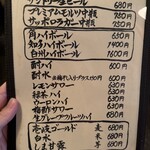 サントリー生ビール 680円
プレミアムモルツ中瓶 780円
サッポロラガー中瓶 780円
角ハイボール 630円
知多ハイボール 1400円
白州ハイボール 1600円
酎ハイ 600円
酎水 600円
レモンサワー 630円
緑茶ハイ 630円
ウーロンハイ 630円
梅酢サワー 680円
生グレープフルーツハイ 680円
壱岐ゴールド 麦 680円
白水 米 680円
しま甘露 芋 680円